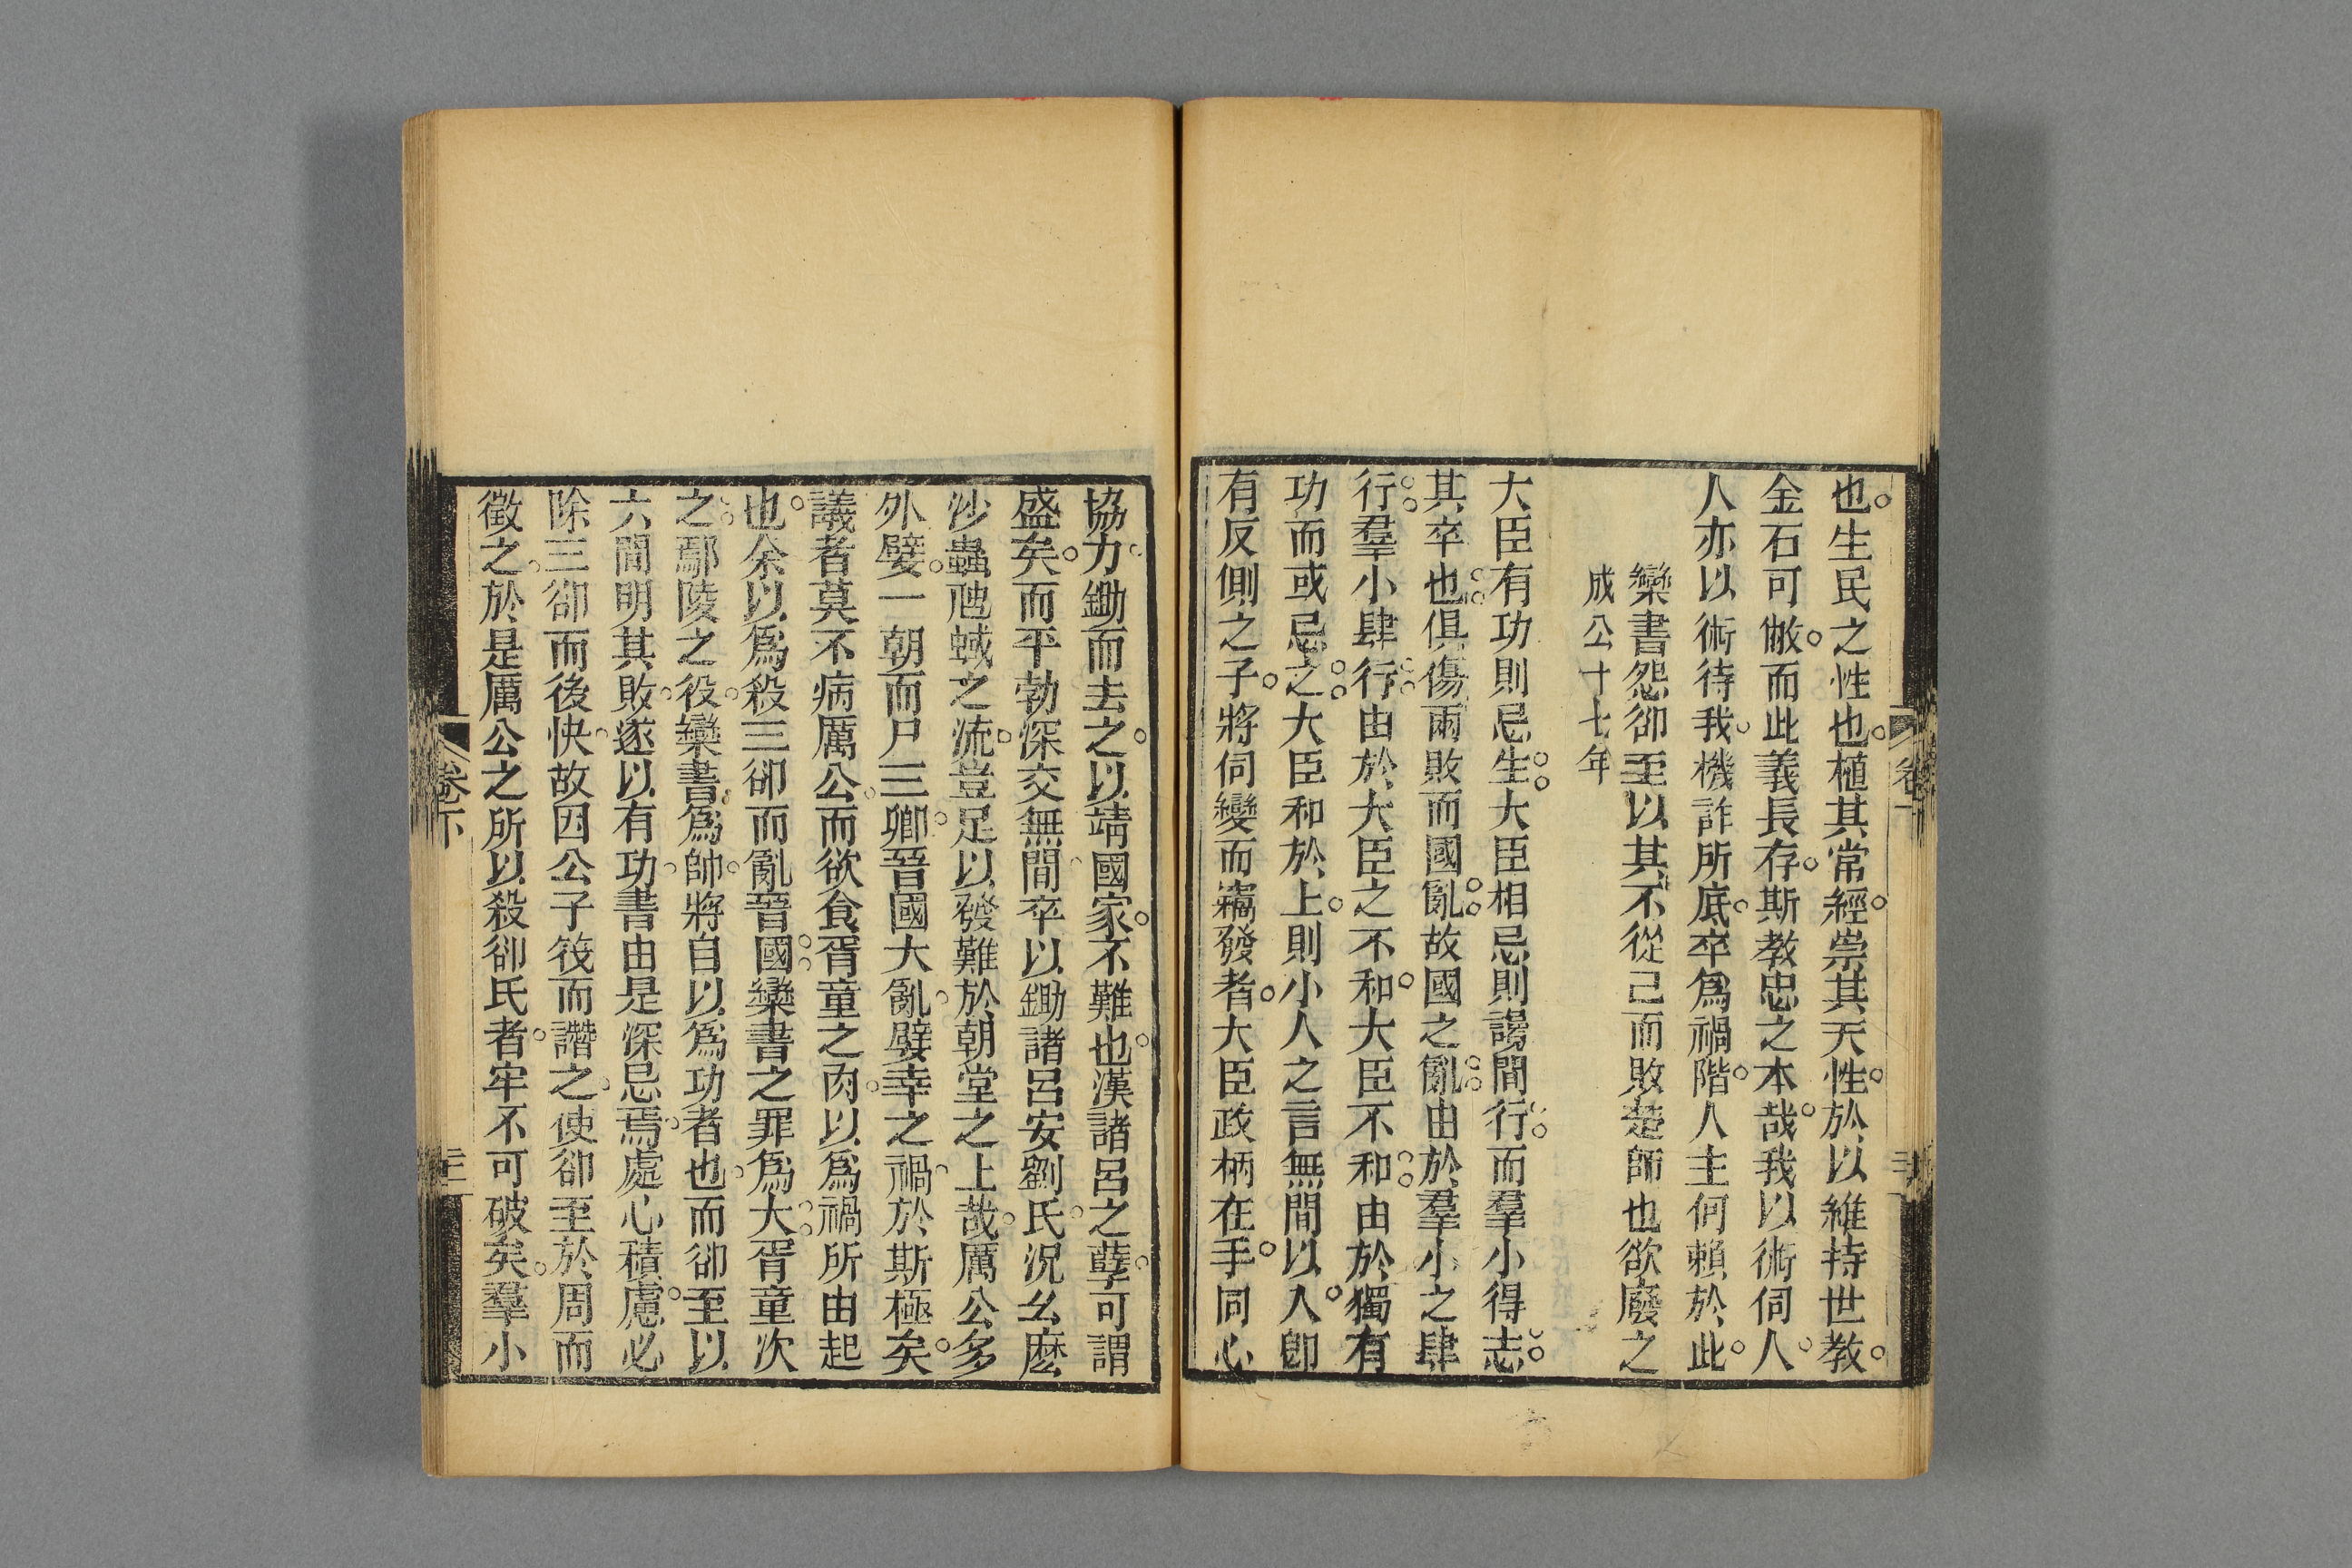 也生民之性也植其常經崇其天性於以維持世教
金石可敝而此義長存斯教忠之本哉我以術伺人
人亦以術待我機詐所底卒爲禍階人主何賴於此
欒書怨卻至以其不從己而敗楚師也欲廢之
成公十七年
大臣有功則忌生大臣相忌則謗間行而羣小得志
其卒也俱傷兩敗而國亂故國之亂由於羣小之肆
行羣小肆行由於大臣之不和大臣不和由於獨有
功而或忌之大臣和於上則小人之言無間以入卽
有反側之子將伺變而竊發者大臣政柄在手同心
協力鋤而去之以靖國家不難也漢諸呂之孽可謂
盛矣而平勃深交無間卒以鋤諸呂安劉氏況幺麼
沙蟲虺蜮之流豈足以發難於朝堂之上哉厲公多
外嬖一朝而尸三卿晉國大亂嬖幸之禍於斯極矣
議者莫不病厲公而欲食胥童之肉以爲禍所由起
也余以爲殺三卻而亂晉國欒書之罪爲大胥童次
之鄢陵之役欒書爲帥將自以爲功者也而卻至以
六間明其敗遂以有功書由是深忌焉處心積慮必
除三卻而後快故因公子筏而譖之使卻至於周而
徵之於是厲公之所以殺卻氏者牢不可破矣羣小
卷下